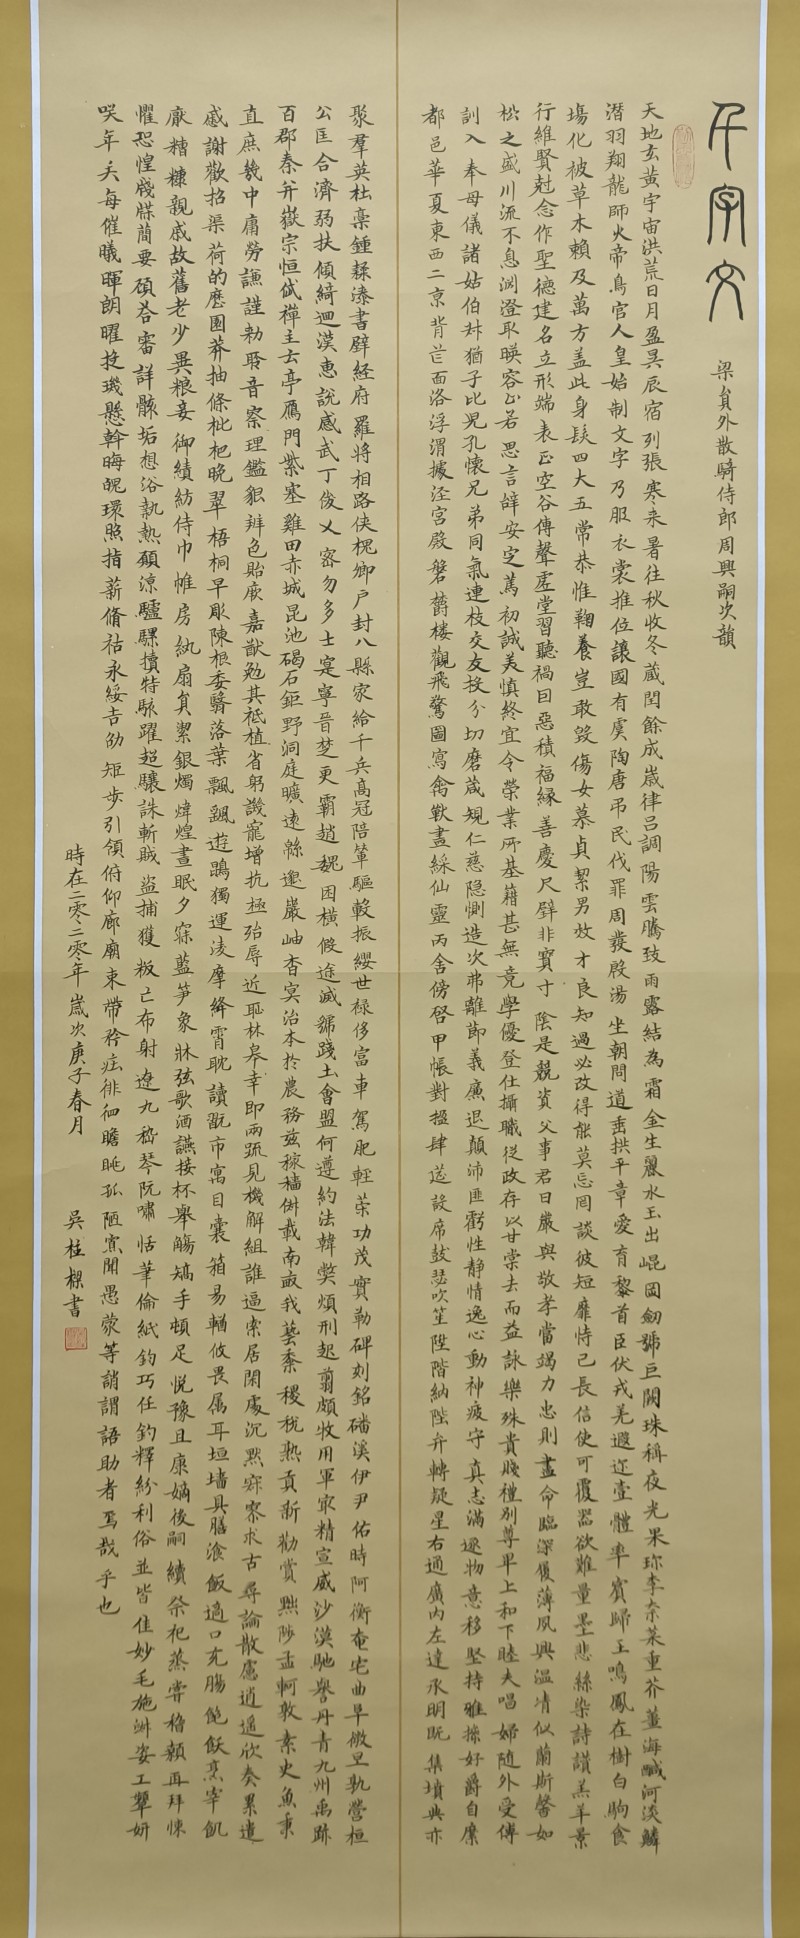 千字文
梁員外散騎侍郎周興嗣次韻
天地玄黃宇宙洪荒日月盈昃辰宿列張寒来暑往秋收冬蔵閏餘成嵗律吕調陽雲騰致雨露結為霜金生麗水玉出崐岡劒號巨闕珠稱夜光果珎李奈菜重芥薑海鹹河淡鱗
潛羽翔龍師火帝鳥官人皇始制文字乃服衣裳推位讓國有虞陶唐弔民伐罪周發殷湯坐朝問道垂拱平章愛育黎首臣伏戎羌遐迩壹體率賓歸王鳴鳳在樹白駒食
塲化被草木賴及萬方盖此身髮四大五常恭惟鞠養豈敢毀傷女慕貞絜男效才良知過必改得能莫忘罔談彼短靡恃己長信使可覆器欲難量墨悲絲染詩讚羔羊景
行維賢尅念作聖德建名立形端表正空谷傳聲虛堂習聽禍因惡積福緣善慶尺璧非寶寸陰是競資父事君曰嚴與敬孝當竭力忠則盡命臨深履薄夙興温凊似蘭斯馨如
松之盛川流不息渊澄取暎容止若思言辝安定篤初誠美慎終宜令榮業所基籍甚無竟學優登仕攝職從政存以甘棠去而益詠樂殊貴賤禮別尊卑上和下睦夫唱婦随外受傅
訓入奉母儀諸姑伯叔猶子比兒孔懷兄弟同氣連枝交友投分切磨箴規仁慈隐惻造次弗離節義廉退顛沛匪虧性静情逸心動神疲守真志滿逐物意移堅持雅操好爵自縻
都邑華夏東西二京背芒面洛浮渭據泾宮殿磐欝樓觀飛驚圖寫禽獸畫綵仙靈丙舍傍啓甲帳對楹肆筵設席鼓瑟吹笙陞階納陛弁轉疑星右通廣內左達承明既集墳典亦
聚羣英杜稾鍾隸漆書壁経府羅將相路侠槐卿户封八縣家給千兵高冠陪輦驅轂振纓世禄侈富車駕肥輕策功茂實勒碑刻銘磻溪伊尹佑時阿衡奄宅曲阜微旦孰營桓
公匡合濟弱扶傾綺迴漢惠說感武丁俊乂密勿多士寔寧晉楚更霸趙魏困横假途滅虢踐土會盟何遵約法韓弊煩刑起翦頗牧用軍㝡精宣威沙漠馳譽丹青九州禹跡
百郡秦并嶽宗恒岱禪主云亭鴈門紫塞雞田赤城昆池碣石鉅野洞庭曠逺緜邈巖岫杳㝠治本扵農務兹稼穡俶載南畝我藝黍稷税熟貢新勸賞黜陟孟軻敦素史魚秉
直庶幾中庸勞謙謹勅聆音察理鑑貌辨色貽厥嘉猷勉其祗植省躬譏寵增抗極殆辱近恥林皋幸即兩疏見機解組誰逼索居閑處沉默寂寥求古尋論散慮逍遥欣奏累遣
慼謝歡招渠荷的歷園莽抽條枇杷晚翠梧桐早彫陳根委翳落葉飄飖遊鵾獨運凌摩絳霄耽讀翫市寓目囊箱易輶攸畏属耳垣墙具膳飡飯適口充腸飽飫烹宰飢
厭糟糠親戚故舊老少異粮妾御績紡侍巾帷房紈扇員潔銀燭煒煌晝眠夕寐藍笋象牀弦歌酒讌接杯舉觴矯手頓足悦豫且康嫡後嗣續祭祀蒸嘗稽顙再拜悚
懼恐惶牋牒簡要顧荅審詳骸垢想浴執熱願凉驢騾犢特駭躍超驤誅斬賊盗捕獲叛亡布射遼丸嵇琴阮嘯恬筆倫紙鈞巧任釣釋紛利俗並皆佳妙毛施淑姿工顰妍
咲年矢每催曦暉朗曜旋璣懸斡晦魄環照指薪脩祜永綏吉劭矩步引領俯仰廊廟束帶矜庄徘徊瞻眺孤陋寡聞愚蒙等誚謂語助者焉哉乎也
時在二零二零年嵗次庚子春月
吴柱樑書